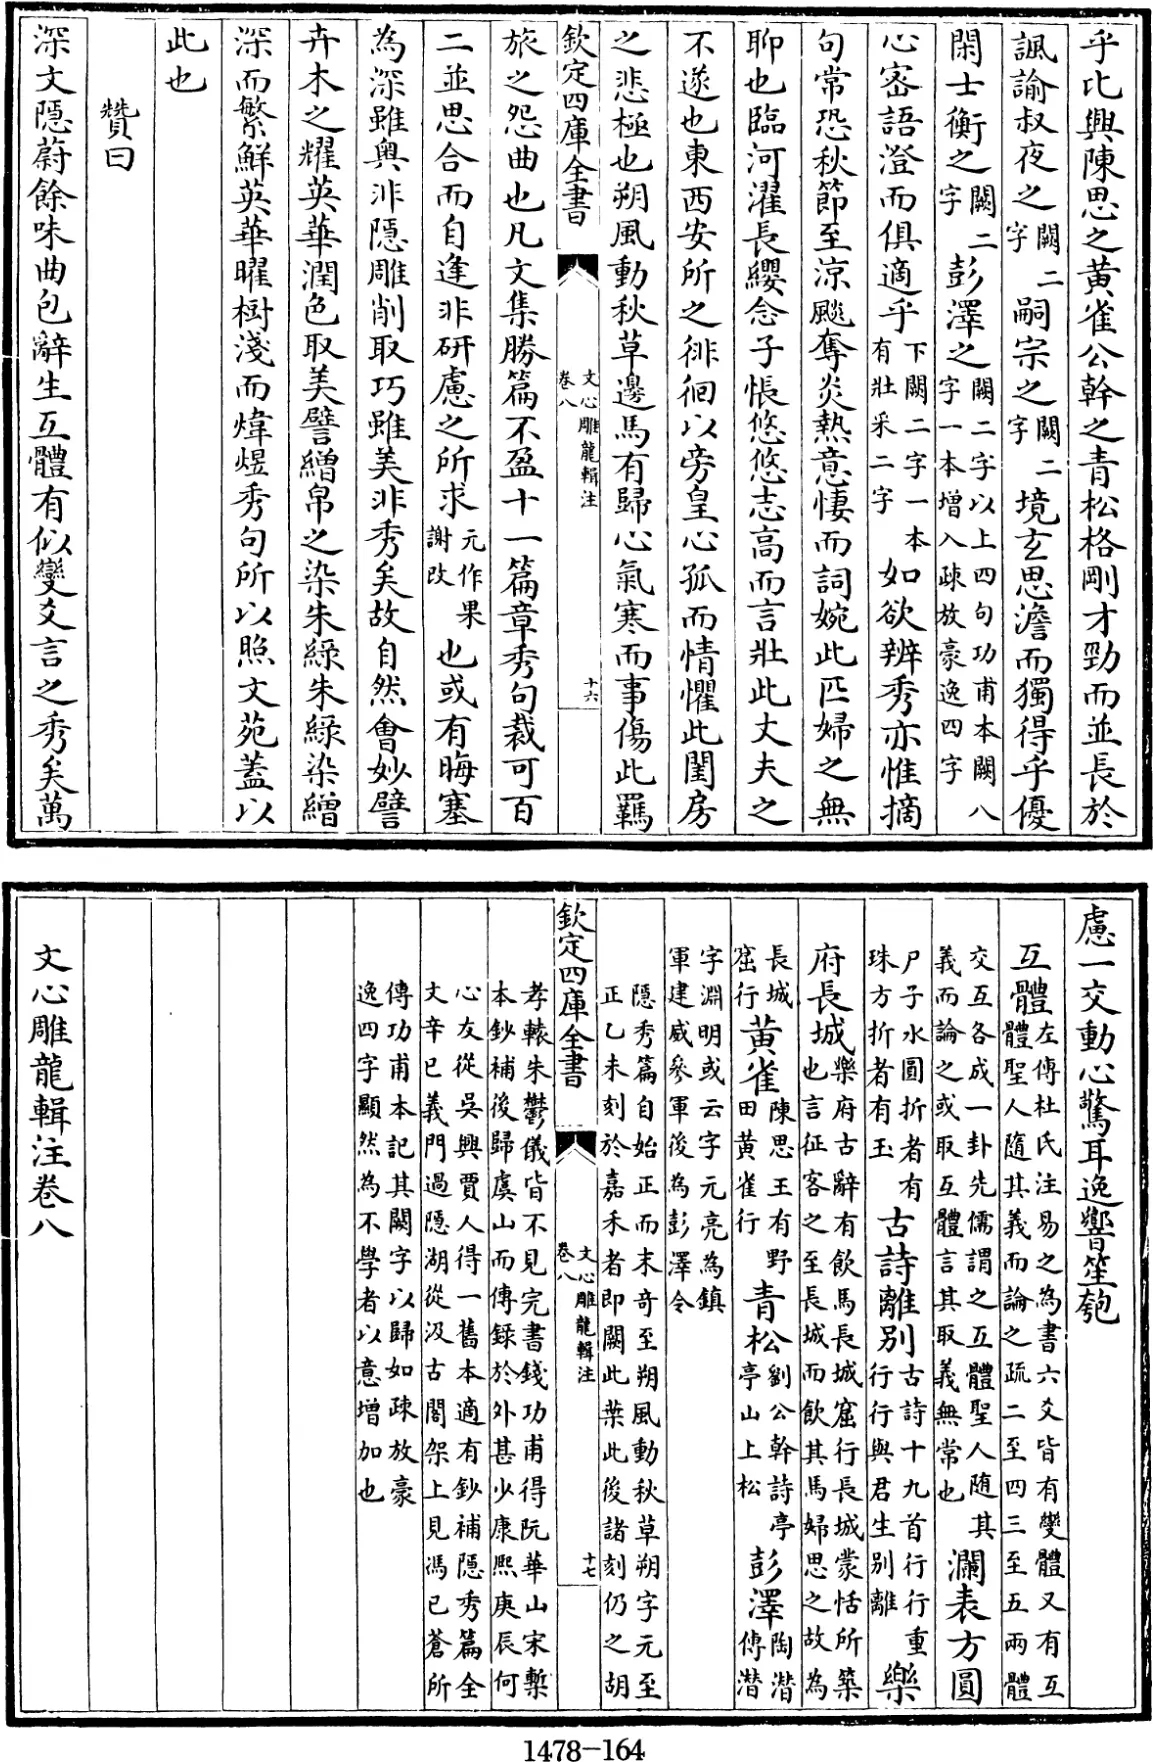 乎比興陳思之黄雀公幹之青松格剛才勁而並長於
諷諭叔夜之闕二字嗣宗之闕二字境玄思澹而獨得乎優
閑士衡之闕二字彭澤之闕二字以上四句功甫本闕八字一本增入疎放豪逸四字
心宻語澄而俱適乎下闕二字一本有壯采二字如欲辨秀亦惟摘
句常恐秋節至凉飈奪炎熱意悽而詞婉此匹婦之無
聊也臨河濯長纓念子悵悠悠志高而言壯此丈夫之
不遂也東西安所之徘徊以旁皇心孤而情懼此閨房
之悲極也朔風動秋草邊馬有歸心氣寒而事傷此羈
欽定四庫全書 文心雕龍輯注卷八 十六
旅之怨曲也凡文集勝篇不盈十一篇章秀句裁可百
二並思合而自逢非研慮之所求元作果謝改也或有晦塞
為深雖奥非隱雕削取巧雖美非秀矣故自然會妙譬
卉木之耀英華潤色取美譬繒帛之染朱緑朱緑染繒
深而繁鮮英華曜樹淺而煒煜秀句所以照文苑蓋以
此也
贊曰
深文隱蔚餘味曲包辭生互體有似變爻言之秀矣萬
慮一交動心驚耳逸響笙匏
互體左傳杜氏注易之為書六爻皆有變體又有互體聖人隨其義而論之疏二至四三至五兩體
交互各成一卦先儒謂之互體聖人随其義而論之或取互體言其取義無常也瀾表方圓
尸子水圓折者有珠方折者有玉古詩離别古詩十九首行行重行行與君生别離樂
府長城樂府古辭有飲馬長城窟行長城蒙恬所築也言征客之至長城而飲其馬婦思之故為
長城窟行黄雀陳思王有野田黄雀行青松劉公幹詩亭亭山上松彭澤陶潛傳潛
字淵明或云字元亮為鎮軍建威參軍後為彭澤令
隱秀篇自始正而末奇至朔風動秋草朔字元至正乙未刻於嘉禾者即闕此葉此後諸刻仍之胡
欽定四庫全書 文心雕龍輯注卷八 十七
孝轅朱鬱儀皆不見完書錢功甫得阮華山宋槧本鈔補後歸虞山而傳録於外甚少康熙庚辰何
心友從吳興賈人得一舊本適有鈔補隱秀篇全文辛巳義門過隱湖從汲古閣架上見馮已蒼所
傳功甫本記其闕字以歸如疎放豪逸四字顯然為不學者以意增加也
文心雕龍輯注卷八
1478-164